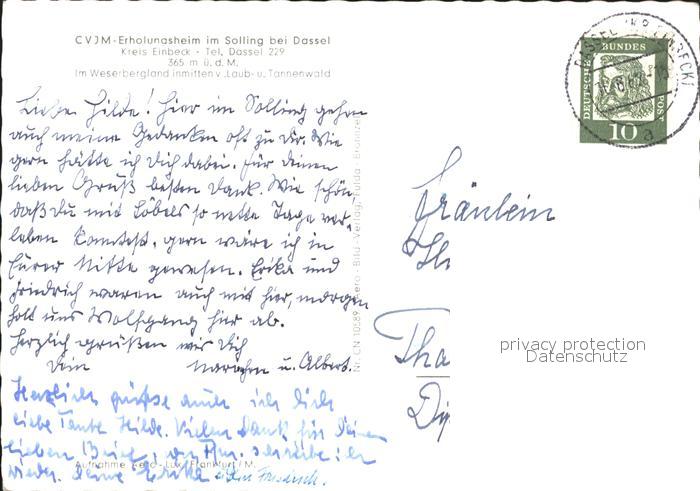 CVJM-Erholungsheim im Solling bei Dassel
Kreis Einbeck · Tel. Dassel 229
365 m ü. d. M.
Im Weserbergland inmitten v. Laub- u. Tannenwald
DEUTSCHE BUNDESPOST
10
DASSEL (KR EINBECK)
a
Liebe Hilde! Hier im Solling gehen
auch meine Gedanken oft zu Dir. Wie
gern hätte ich Dich dabei. Für Deinen
lieben Gruß besten Dank. Wie schön,
daß Du mit Löbels so nette Tage ver-
leben konntest, gern wäre ich in
Eurer Mitte gewesen. Erika und
Friedrich waren auch mit hier, morgen
holt uns Wolfgang hier ab.
Herzlich grüßen wir Dich
Dein u. Albert.
Herzlich grüße auch ich Dich
liebe Tante Hilde. Vielen Dank für Deinen
lieben Brief, schreibe ich
wieder. Deine Erika Friedrich.
Aufnahme Aero-Lux, Frankfurt/M.
Nr. CN 10589 Aero-Bild-Verlag, Fulda
Fräulein
Hi
Tha
privacy protection
Datenschutz